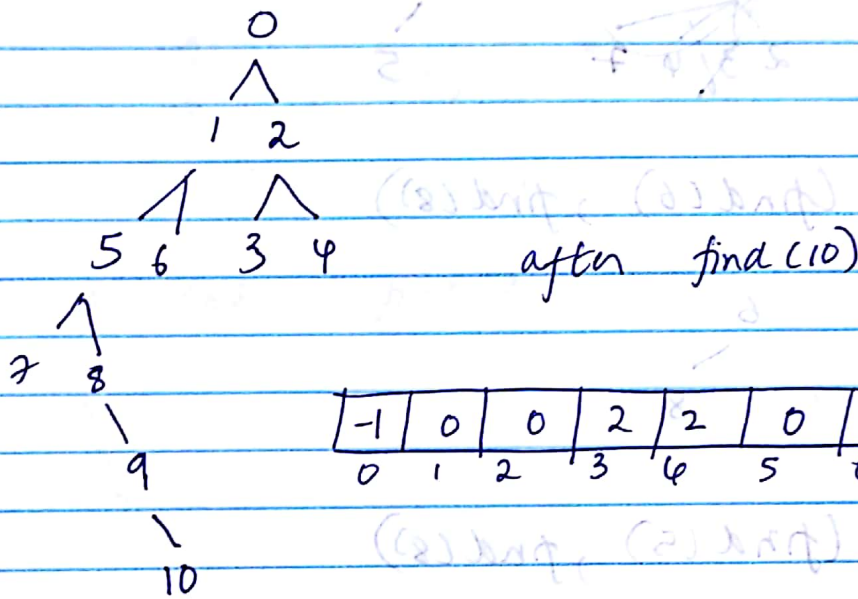 0
1 2
5 6 3 4
after find (10)
7 8
-1 0 0 2 2 0
9
0 1 2 3 4 5
10